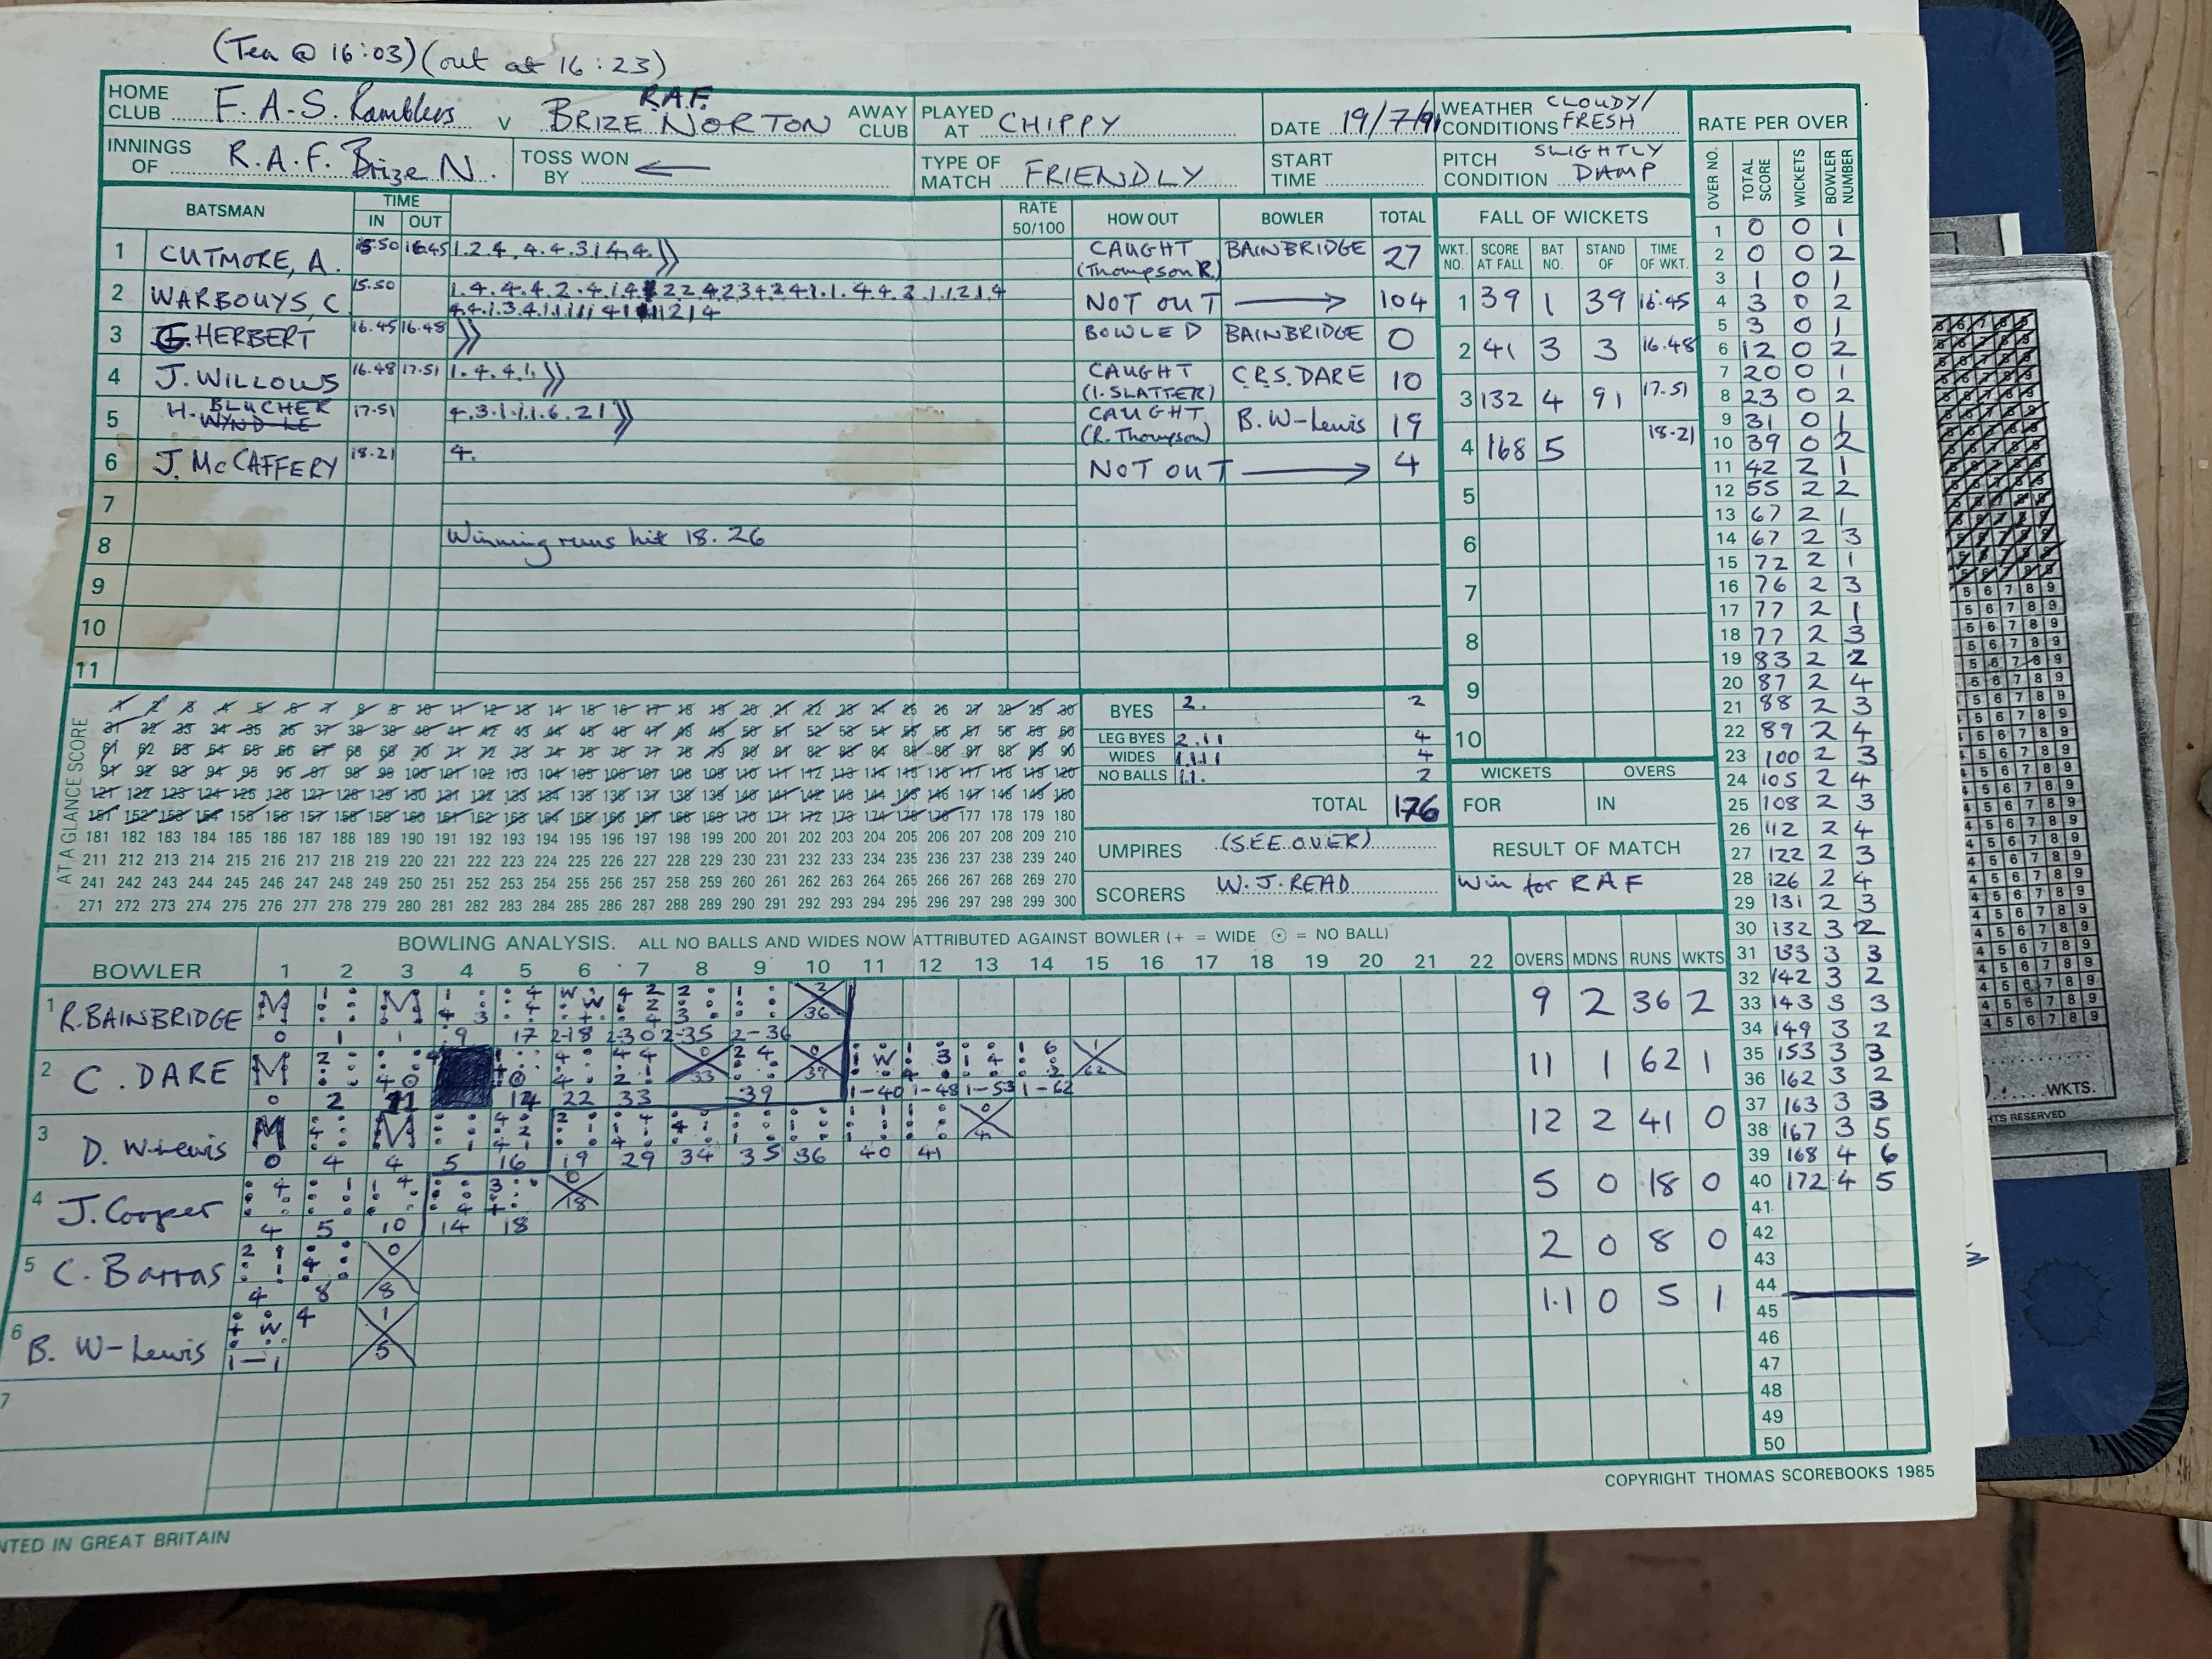 (Tea @ 16:03) (out at 16:23)
HOME CLUB F.A.S. Ramblers v R.A.F. BRIZE NORTON AWAY CLUB PLAYED AT CHIPPY DATE 19/7/91 WEATHER CONDITIONS CLOUDY/ FRESH
INNINGS OF R.A.F. Brize N. TOSS WON BY ← TYPE OF MATCH FRIENDLY START TIME PITCH CONDITION SLIGHTLY DAMP
BATSMAN TIME IN OUT RATE 50/100 HOW OUT BOWLER TOTAL
1 CUTMORE, A. 15.50 16.45 1.2.4.4.4.3 1 4.4. CAUGHT (Thompson R.) BAINBRIDGE 27
2 WARBOUYS, C 15.50 NOT OUT → 104
3 G. HERBERT 16.45 16.48 BOWLED BAINBRIDGE 0
4 J. WILLOWS 16.48 17.51 1.4.4.1. CAUGHT (I. SLATTER) C.R.S. DARE 10
5 H. BLUCHER 17.51 4.3.1.1.1.6.21 CAUGHT (R. Thompson) B. W-Lewis 19
6 J. McCAFFERY 18.21 4. NOT OUT → 4
7
8 Winning runs hit 18.26
9
10
11
FALL OF WICKETS
WKT. NO. SCORE AT FALL BAT NO. STAND OF TIME OF WKT.
1 39 1 39 16.45
2 41 3 3 16.48
3 132 4 91 17.51
4 168 5 18.21
5
6
7
8
9
10
WICKETS OVERS
FOR IN
RESULT OF MATCH
Win for RAF
AT A GLANCE SCORE
1 2 3 4 5 6 7 8 9 10 11 12 13 14 15 16 17 18 19 20 21 22 23 24 25 26 27 28 29 30
31 32 33 34 35 36 37 38 39 40 41 42 43 44 45 46 47 48 49 50 51 52 53 54 55 56 57 58 59 60
61 62 63 64 65 66 67 68 69 70 71 72 73 74 75 76 77 78 79 80 81 82 83 84 85 86 87 88 89 90
91 92 93 94 95 96 97 98 99 100 101 102 103 104 105 106 107 108 109 110 111 112 113 114 115 116 117 118 119 120
121 122 123 124 125 126 127 128 129 130 131 132 133 134 135 136 137 138 139 140 141 142 143 144 145 146 147 148 149 150
151 152 153 154 155 156 157 158 159 160 161 162 163 164 165 166 167 168 169 170 171 172 173 174 175 176 177 178 179 180
181 182 183 184 185 186 187 188 189 190 191 192 193 194 195 196 197 198 199 200 201 202 203 204 205 206 207 208 209 210
211 212 213 214 215 216 217 218 219 220 221 222 223 224 225 226 227 228 229 230 231 232 233 234 235 236 237 238 239 240
241 242 243 244 245 246 247 248 249 250 251 252 253 254 255 256 257 258 259 260 261 262 263 264 265 266 267 268 269 270
271 272 273 274 275 276 277 278 279 280 281 282 283 284 285 286 287 288 289 290 291 292 293 294 295 296 297 298 299 300
BYES 2. 2
LEG BYES 2.11 4
WIDES 1111 4
NO BALLS 11. 2
TOTAL 176
UMPIRES (SEE OVER)
SCORERS W. J. READ
BOWLING ANALYSIS. ALL NO BALLS AND WIDES NOW ATTRIBUTED AGAINST BOWLER (+ = WIDE ⊙ = NO BALL)
BOWLER 1 2 3 4 5 6 7 8 9 10 11 12 13 14 15 16 17 18 19 20 21 22 OVERS MDNS RUNS WKTS
1 R. BAINBRIDGE 0 1 1 9 17 2-18 2-30 2-35 2-36 36 9 2 36 2
2 C. DARE 0 2 11 14 22 33 33 39 39 1-40 1-48 1-53 1-62 62 11 1 62 1
3 D. W-Lewis 0 4 4 5 16 19 29 34 35 36 40 41 12 2 41 0
4 J. Cooper 4 5 10 14 18 18 5 0 18 0
5 C. Barras 4 8 8 2 0 8 0
6 B. W-Lewis 1-1 5 1.1 0 5 1
7
RATE PER OVER
OVER NO. TOTAL SCORE WICKETS BOWLER NUMBER
1 0 0 1
2 0 0 2
3 1 0 1
4 3 0 2
5 3 0 1
6 12 0 2
7 20 0 1
8 23 0 2
9 31 0 1
10 39 0 2
11 42 2 1
12 55 2 2
13 67 2 1
14 67 2 3
15 72 2 1
16 76 2 3
17 77 2 1
18 77 2 3
19 83 2 2
20 87 2 4
21 88 2 3
22 89 2 4
23 100 2 3
24 105 2 4
25 108 2 3
26 112 2 4
27 122 2 3
28 126 2 4
29 131 2 3
30 132 3 2
31 133 3 3
32 142 3 2
33 143 3 3
34 149 3 2
35 153 3 3
36 162 3 2
37 163 3 3
38 167 3 5
39 168 4 6
40 172 4 5
41
42
43
44
45
46
47
48
49
50
COPYRIGHT THOMAS SCOREBOOKS 1985
NTED IN GREAT BRITAIN
WKTS.
HTS RESERVED